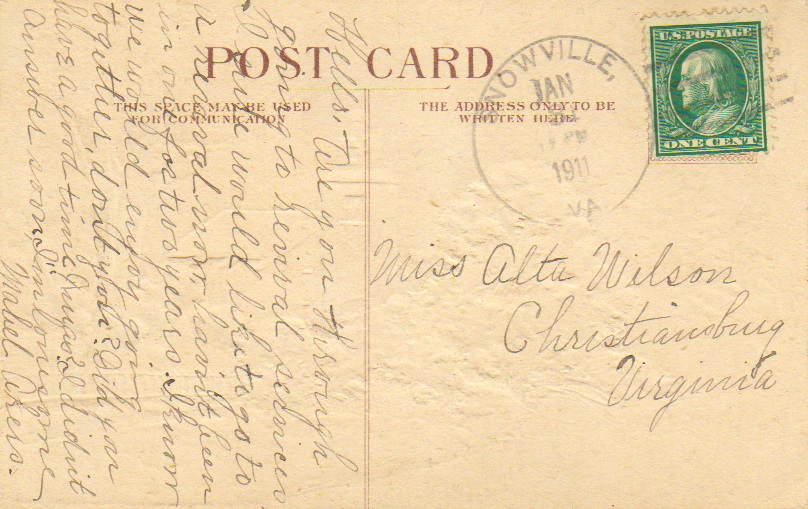 POST CARD
THIS SPACE MAY BE USED
FOR COMMUNICATION
THE ADDRESS ONLY TO BE
WRITTEN HERE
NOWVILLE,
JAN
PM
1911
VA
U.S. POSTAGE
ONE CENT
Miss Alta Wilson
Christiansburg
Virginia
Hello. Are you through
going to revival services
I sure would like to go to
a revival now, haven't been
in one for two years. I know
we would enjoy going
together, don't you? Did you
have a good time I didn't
answer soon, I'm lonesome
Mabel Akers.